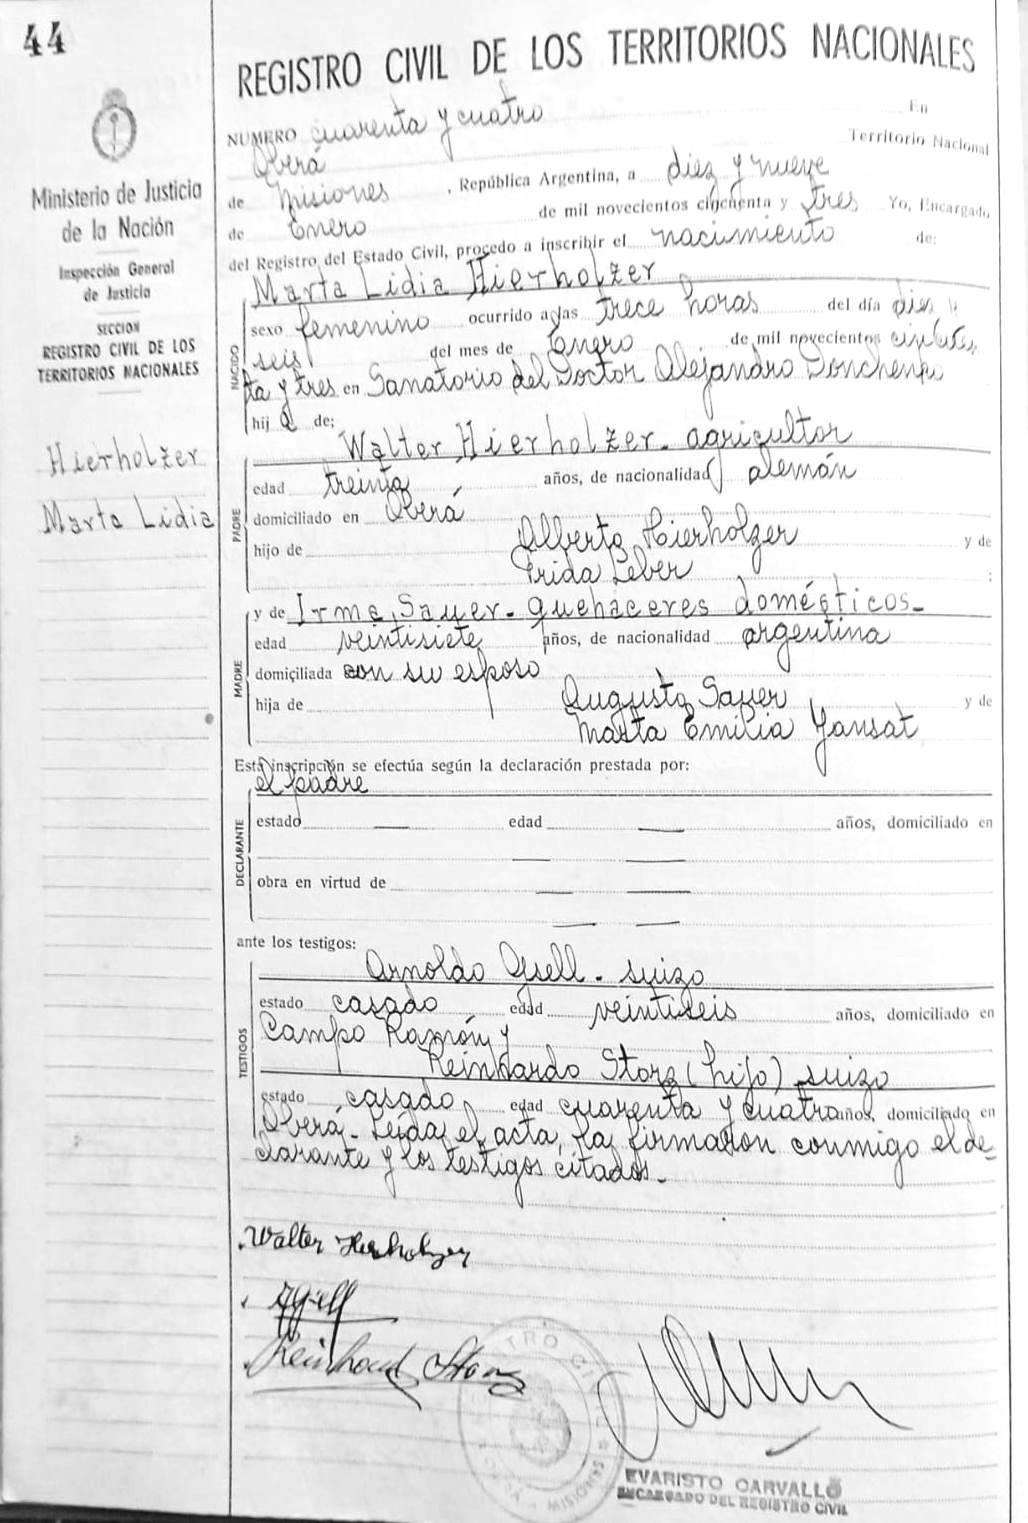 44
REGISTRO CIVIL DE LOS TERRITORIOS NACIONALES
Ministerio de Justicia
de la Nación
Inspección General
de Justicia
SECCION
REGISTRO CIVIL DE LOS
TERRITORIOS NACIONALES
Hierholzer
Marta Lidia
NUMERO cuarenta y cuatro En
Oberá Territorio Nacional
de Misiones, República Argentina, a diez y nueve
de Enero de mil novecientos cincuenta y tres Yo, Encargado
del Registro del Estado Civil, procedo a inscribir el nacimiento de:
NACIDO
Marta Lidia Hierholzer
sexo femenino ocurrido a las trece horas del día diez y
seis del mes de Enero de mil novecientos cincuen
ta y tres en Sanatorio del Doctor Alejandro Donchenko
hija de;
PADRE
Walter Hierholzer - agricultor
edad treinta años, de nacionalidad alemán
domiciliado en Oberá
hijo de Alberto Hierholzer y de
Frida Leber :
MADRE
y de Irma Sauer - quehaceres domésticos -
edad veintisiete años, de nacionalidad argentina
domiciliada con su esposo
hija de Augusto Sauer y de
Marta Emilia Yansat
Esta inscripción se efectúa según la declaración prestada por:
el padre
DECLARANTE
estado — edad — años, domiciliado en
— —
obra en virtud de — —
— —
ante los testigos:
TESTIGOS
Arnoldo Gsell - suizo
estado casado edad veintiseis años, domiciliado en
Campo Ramón y
Reinhardo Storz (hijo) suizo
estado casado edad cuarenta y cuatro años, domiciliado en
Oberá - Leída el acta, la firmaron conmigo el de-
clarante y los testigos citados -
Walter Hierholzer
AGsell
Reinhard Storz
REGISTRO CIVIL
MISIONES
EVARISTO CARVALLO
ENCARGADO DEL REGISTRO CIVIL